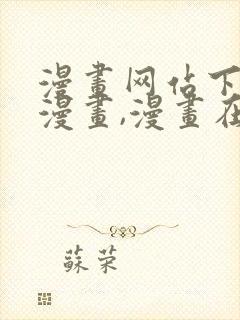 漫畫网估下
漫畫,漫畫在
蘇荣